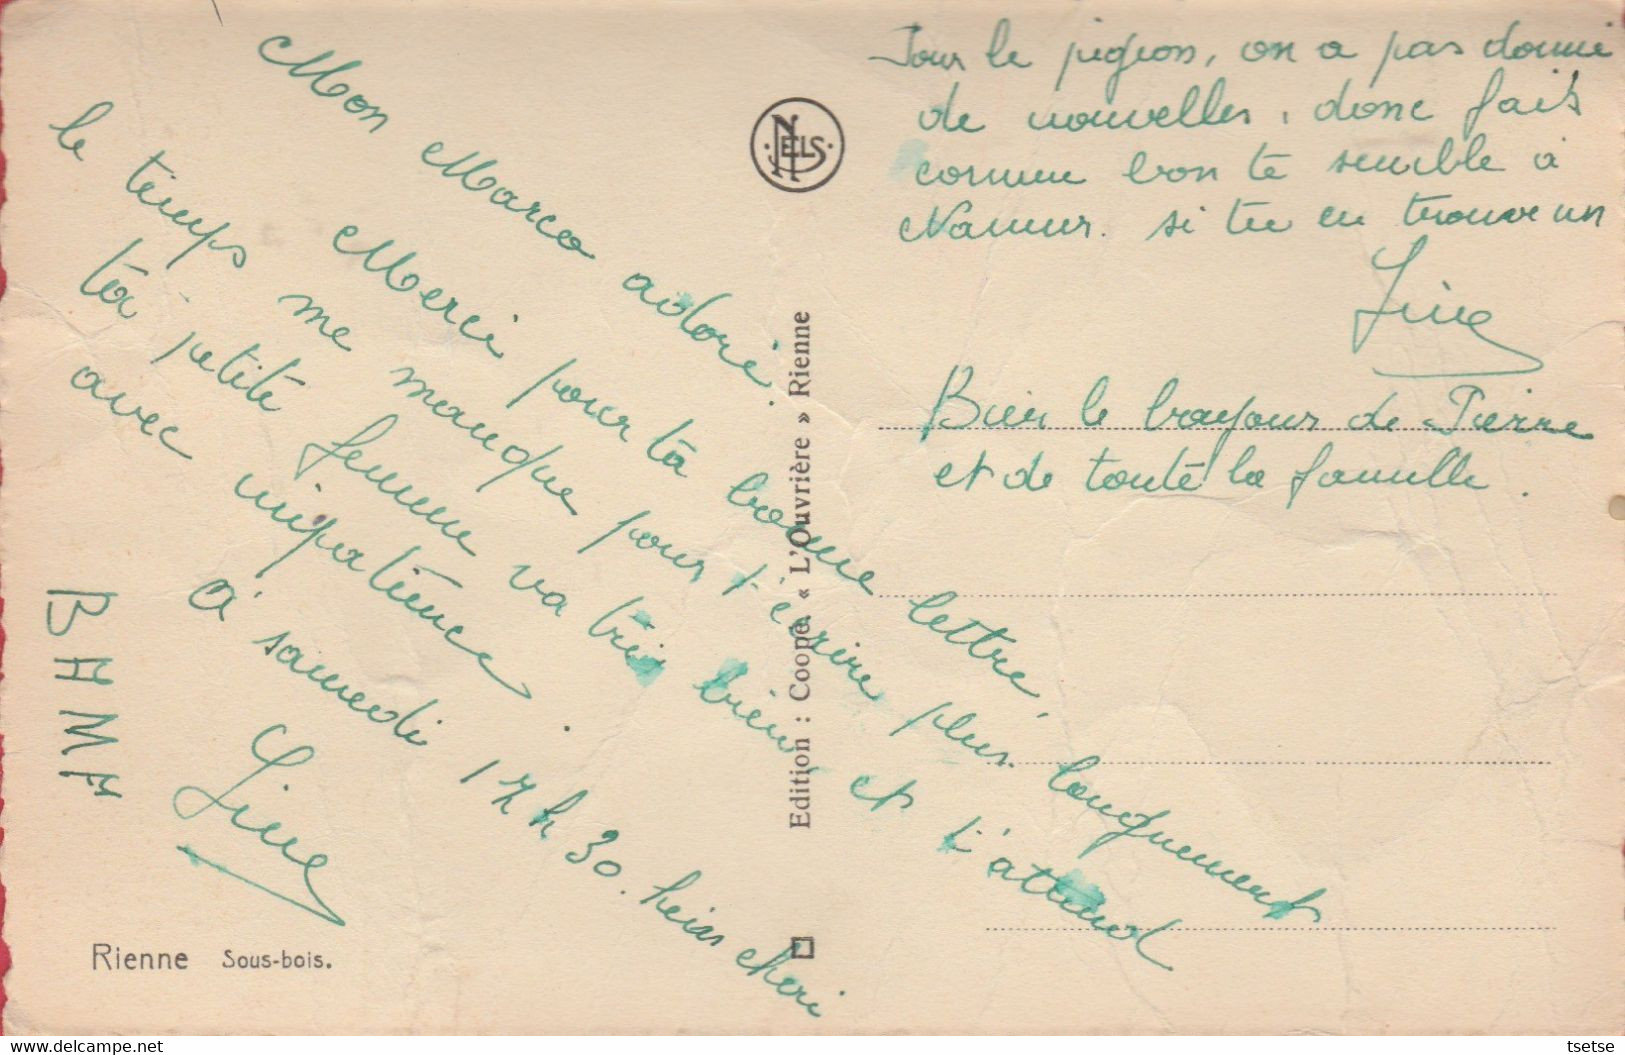 Mon Marco adoré.
Merci pour ta bonne lettre,
le temps me manque pour t'écrire plus longuement
ta petite femme va très bien et t'attend
avec impatience
à samedi 17 h 30. hein cheri
Line
BAMA
Rienne Sous-bois.
NELS
Edition : Coopé. « L'Ouvrière » Rienne
Pour le pigeon, on a pas donné
de nouvelles, donc fais
comme bon te semble à
Namur. si tu en trouve un
Line
Bien le bonjour de Pierre
et de toute la famille.
delcampe.net
tsetse